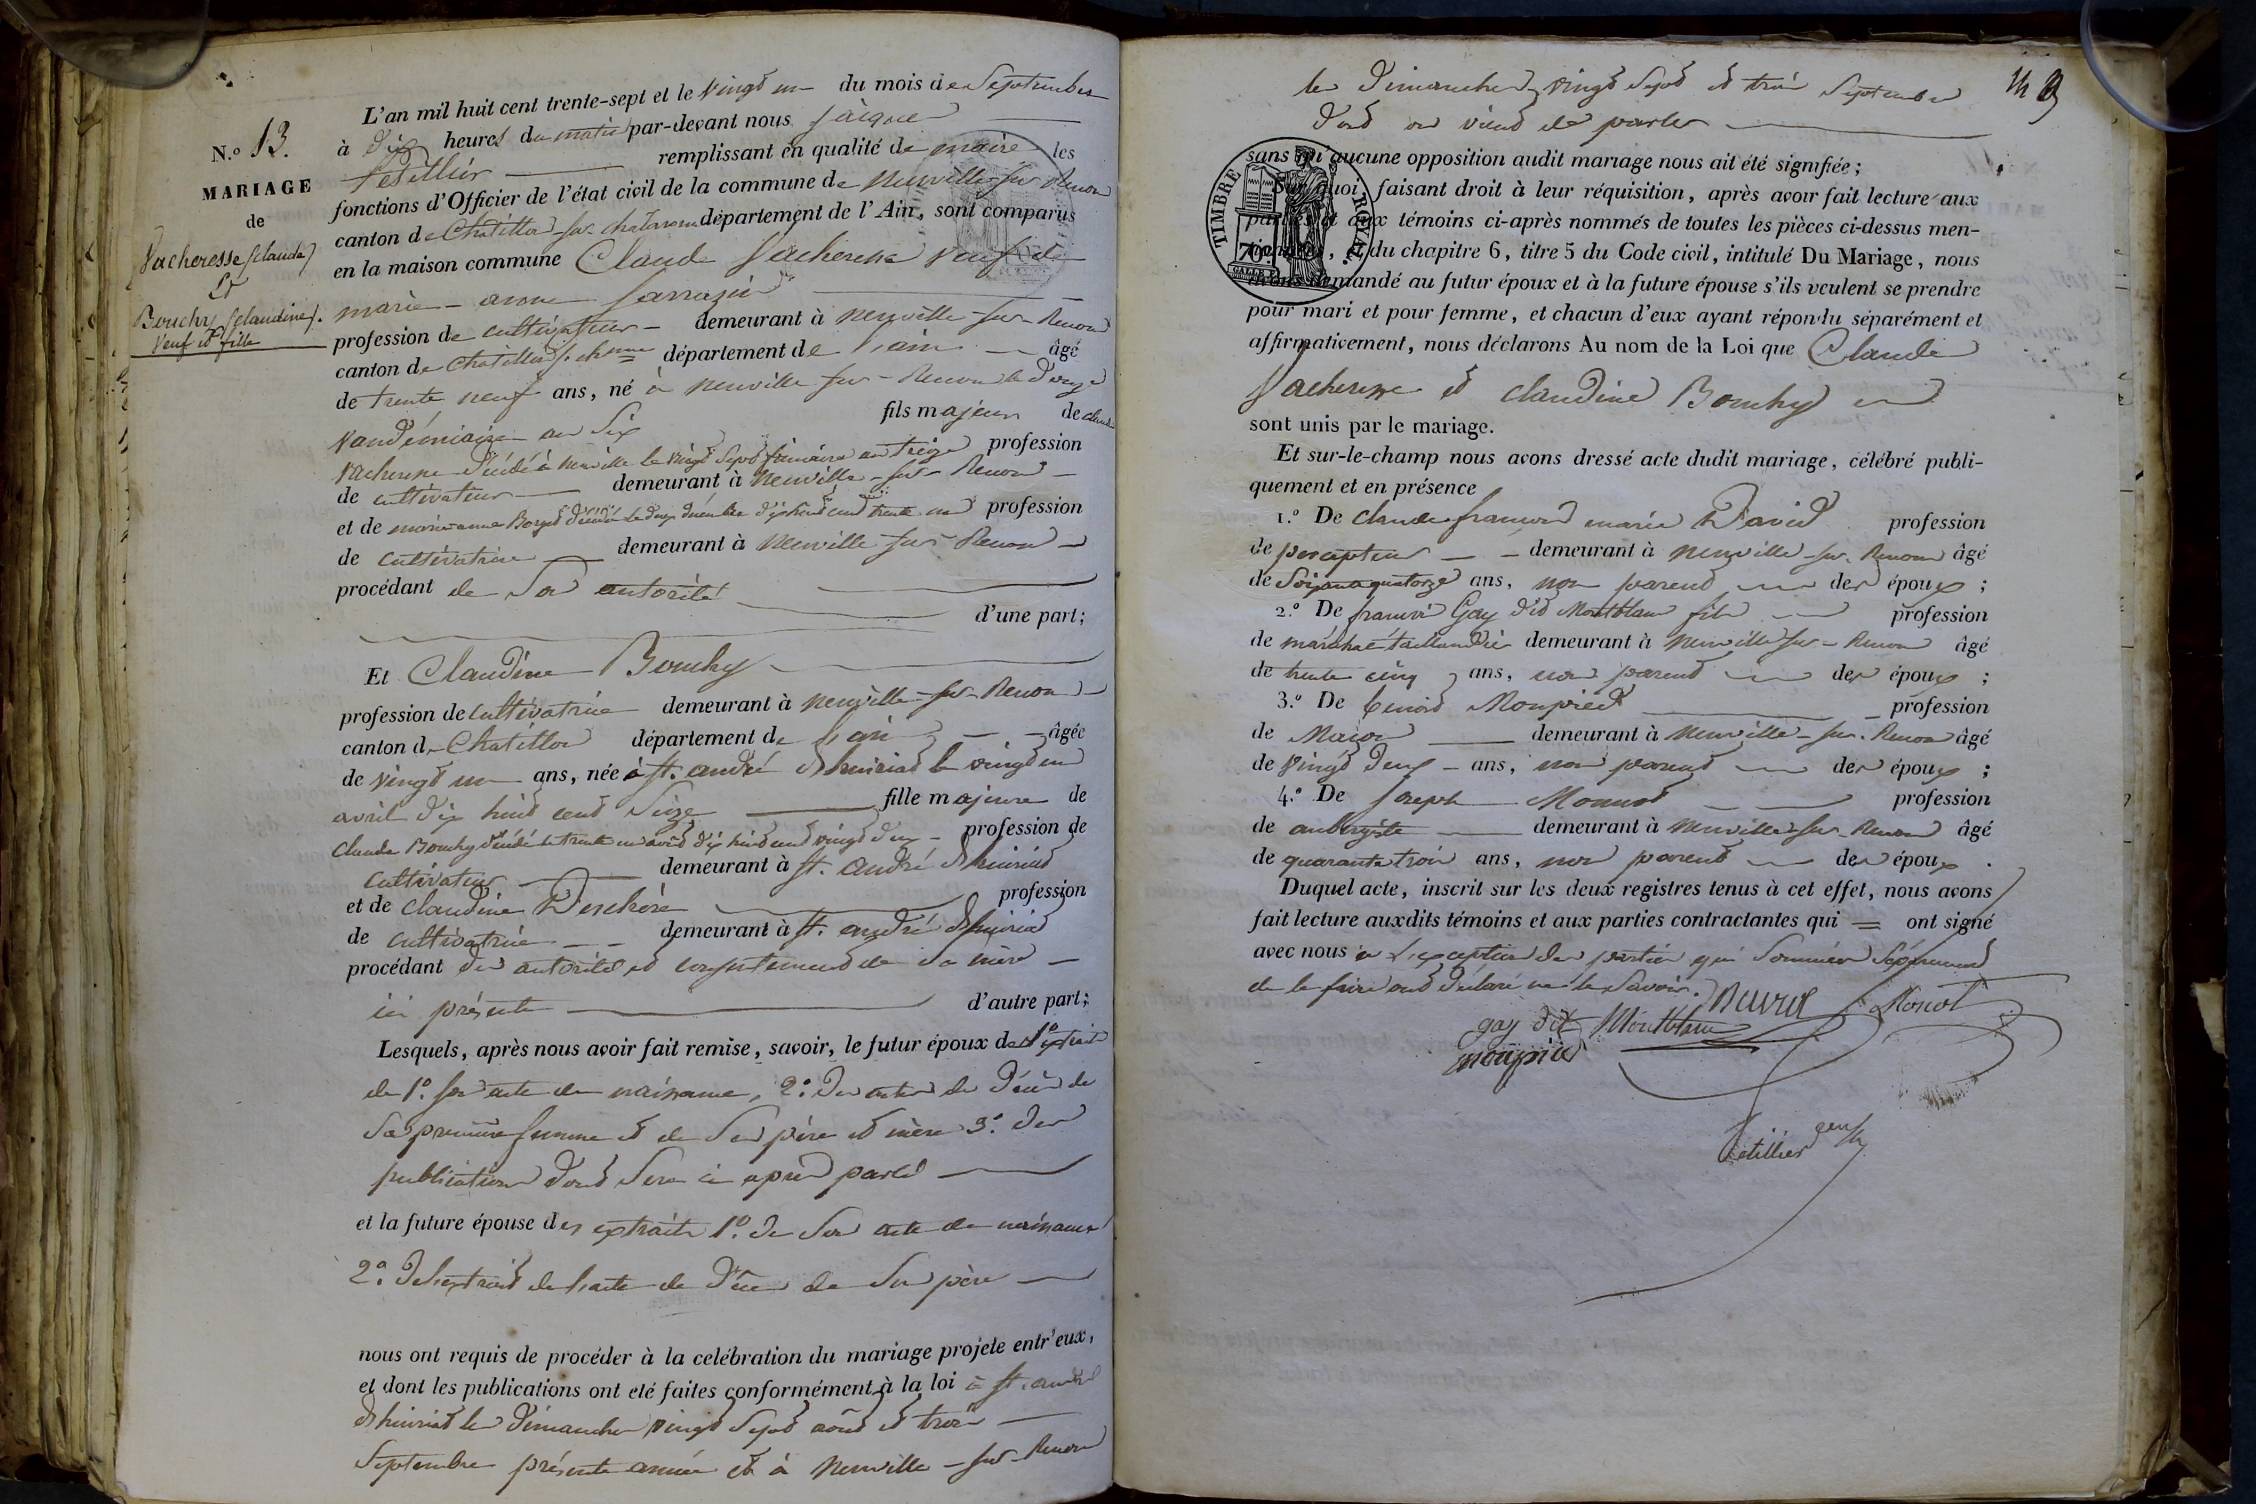 N.o 13.
MARIAGE
de
Vacheresse (Claude)
et
Bouchy (Claudine).
Veuf et fille
L'an mil huit cent trente-sept et le vingt un du mois de Septembre
à dix heures du matin par-devant nous Jacques
Tetillier remplissant en qualité de maire les
fonctions d'Officier de l'état civil de la commune de Neuville-sur-Renon
canton de Chatillon-sur-chalaronne département de l'Ain, sont comparus
en la maison commune Claude Vacheresse veuf de
marie-anne Sarrazin
profession de cultivateur demeurant à neuville-sur-Renon
canton de Chatillon s. chnne département de l'ain âgé
de trente neuf ans, né à neuville sur-Renon le douze
Vandémiaire an Six fils majeur de claude
Vacheresse décédé à Neuville le vingt sept frimaire an treize profession
de cultivateur demeurant à Neuville-sur-Renon
et de marie anne décédée le dix huit cent trente profession
de cultivatrice demeurant à Neuville sur Renon
procédant de son autorité
d'une part;
Et Claudine Bouchy
profession de cultivatrice demeurant à neuville-sur-Renon
canton de Chatillon département de l'ain âgée
de vingt un ans, née à St. andré d'huiriat le vingt un
avril dix huit cent seize fille majeure de
Claude Bouchy décédé le trente un dix huit cent vingt deux profession de
cultivateur demeurant à St. andré d'huiriat
et de claudine profession
de cultivatrice demeurant à St. andré d'huiriat
procédant autorité et consentement de sa mère
ici présente d'autre part;
Lesquels, après nous avoir fait remise, savoir, le futur époux de extrait
de 1o. son acte de naissance, 2o. des actes de décès de
sa première femme et de ses père et mère 3o. des
publications dont sera ci après parlé
et la future épouse des extraits 1o. de son acte de naissance
2o. de l'extrait de l'acte de décès de son père
nous ont requis de procéder à la celébration du mariage projeté entr'eux,
et dont les publications ont eté faites conformément à la loi à St. andré
d'huiriat les dimanches vingt sept août et trois
Septembre présente année et à Neuville-sur-Renon
les dimanches vingt sept et trois Septembre
dont on vient de parler
sans qu'aucune opposition audit mariage nous ait été signifiée;
Sur quoi, faisant droit à leur réquisition, après avoir fait lecture aux
parties et aux témoins ci-après nommés de toutes les pièces ci-dessus men-
tionnées, et du chapitre 6, titre 5 du Code civil, intitulé Du Mariage, nous
avons demandé au futur époux et à la future épouse s'ils veulent se prendre
pour mari et pour femme, et chacun d'eux ayant répondu séparément et
affirmativement, nous déclarons Au nom de la Loi que Claude
Vacheresse et claudine Bouchy
sont unis par le mariage.
Et sur-le-champ nous avons dressé acte dudit mariage, célébré publi-
quement et en présence
1.o De Claude françois marie David profession
de percepteur demeurant à neuville-sur-Renon âgé
de Soixante quatorze ans, non parent des époux;
2.o De françois Gay dit Montblanc fils profession
de maréchal taillandier demeurant à Neuville sur-Renon âgé
de trente cinq ans, non parent des époux;
3.o De Benoit Monpied profession
de Maçon demeurant à neuville-sur-Renon âgé
de vingt deux ans, non parent des époux;
4.o De Joseph Monnot profession
de aubergiste demeurant à Neuville-sur-Renon âgé
de quarante trois ans, non parent des époux.
Duquel acte, inscrit sur les deux registres tenus à cet effet, nous avons
fait lecture auxdits témoins et aux parties contractantes qui ont signé
avec nous à l'exception des parties qui sommées séparément
de le faire ont déclaré ne le savoir.
gay dit Montblanc
Monot
monpied
Tetillier
TIMBRE ROYAL